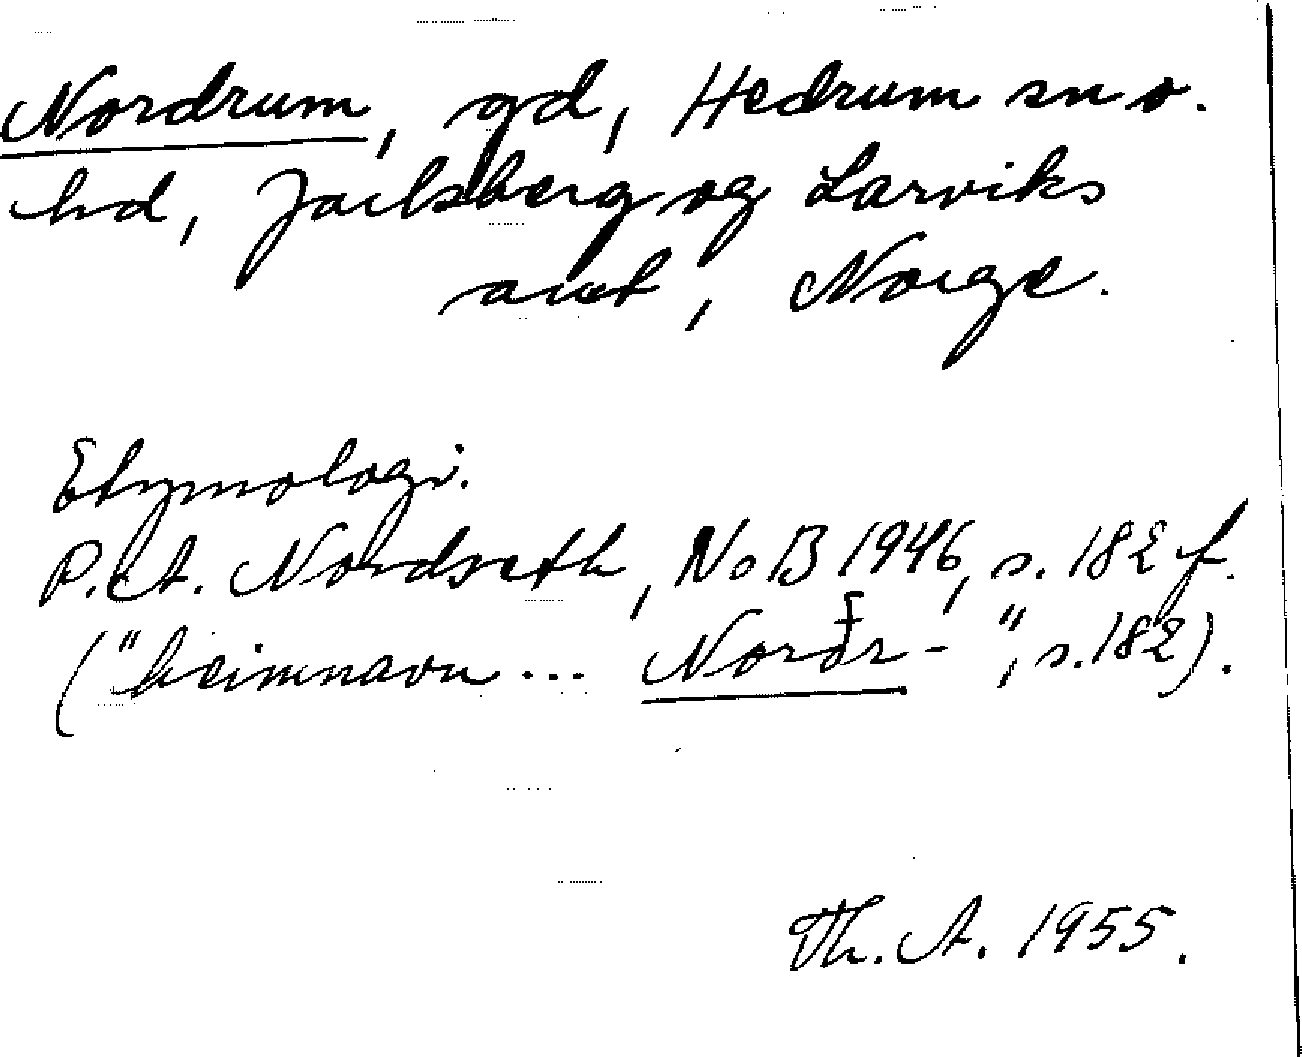 Nordrum, gd, Hedrum sn o.
hd, Jarlsberg og Larviks
amt, Norge.
Etymologi.
P. A. Nordseth, NoB 1946, s. 182 f.
("heimnavn... Norðr- ", s. 182).
Th. A. 1955.